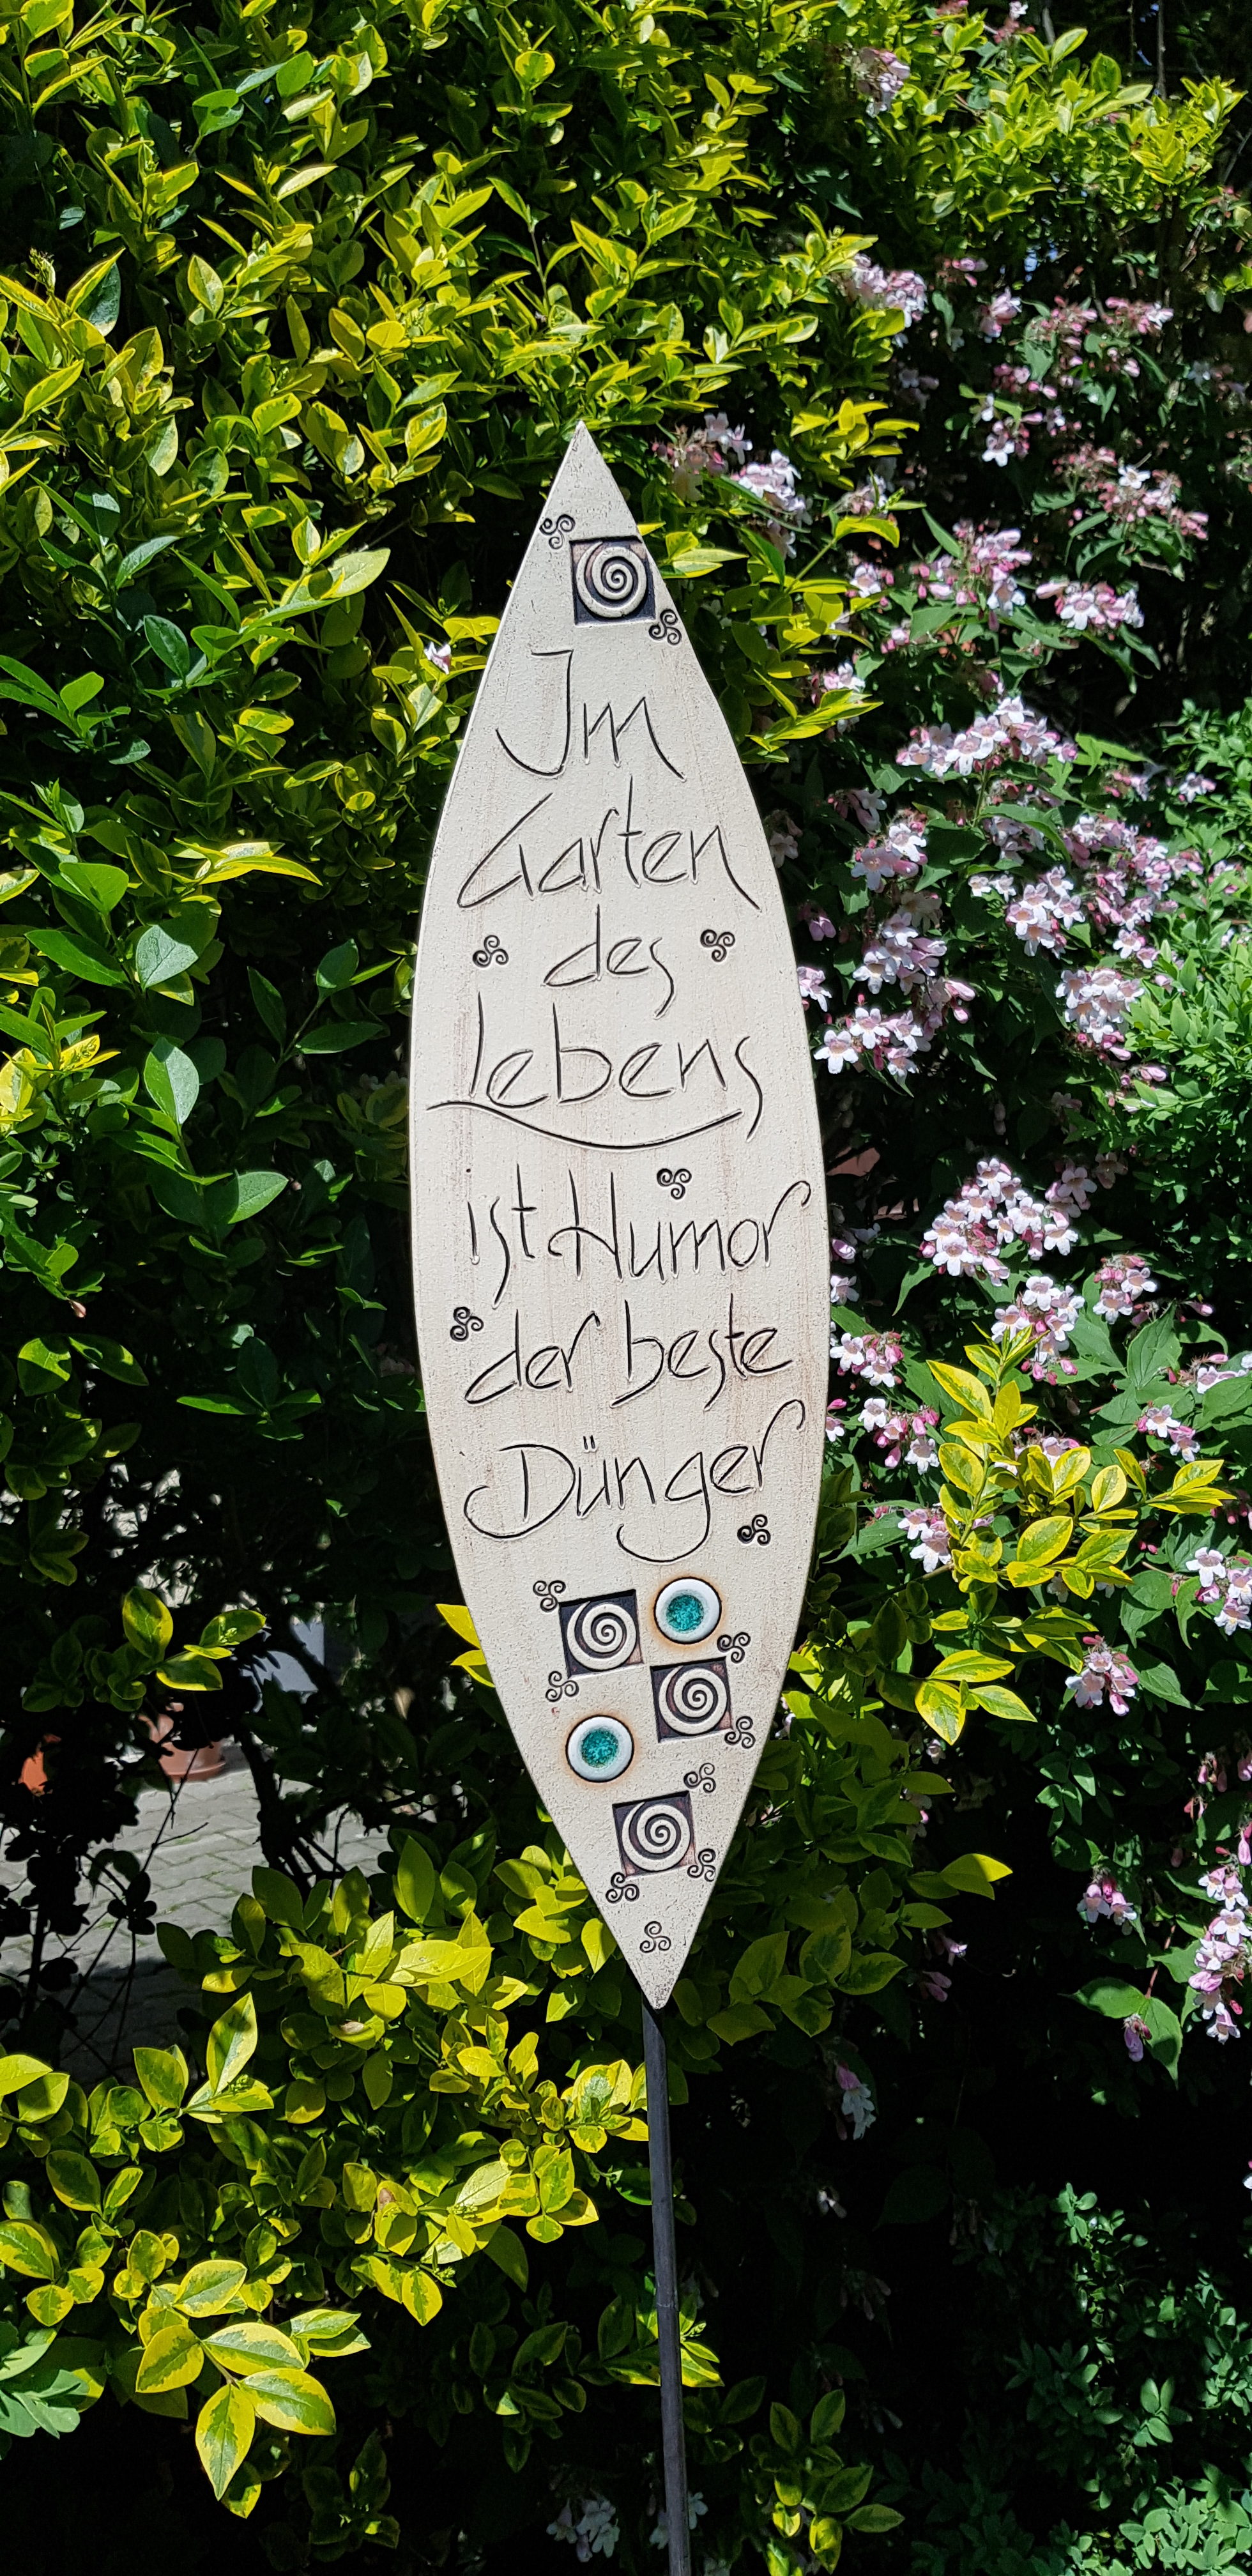 Im
Garten
des
Lebens
ist Humor
der beste
Dünger